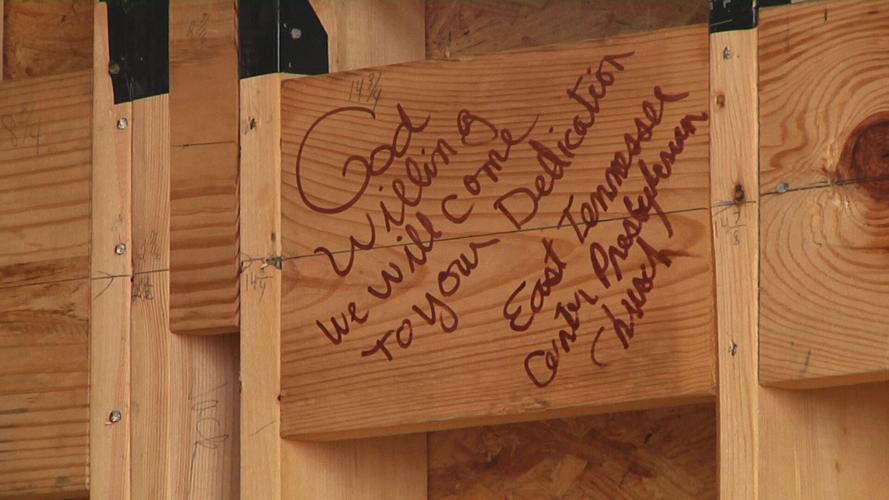 God
Willing
We will come
To your Dedication
East Tennessee
Presbyterian
Church
14 3/4
8 1/4